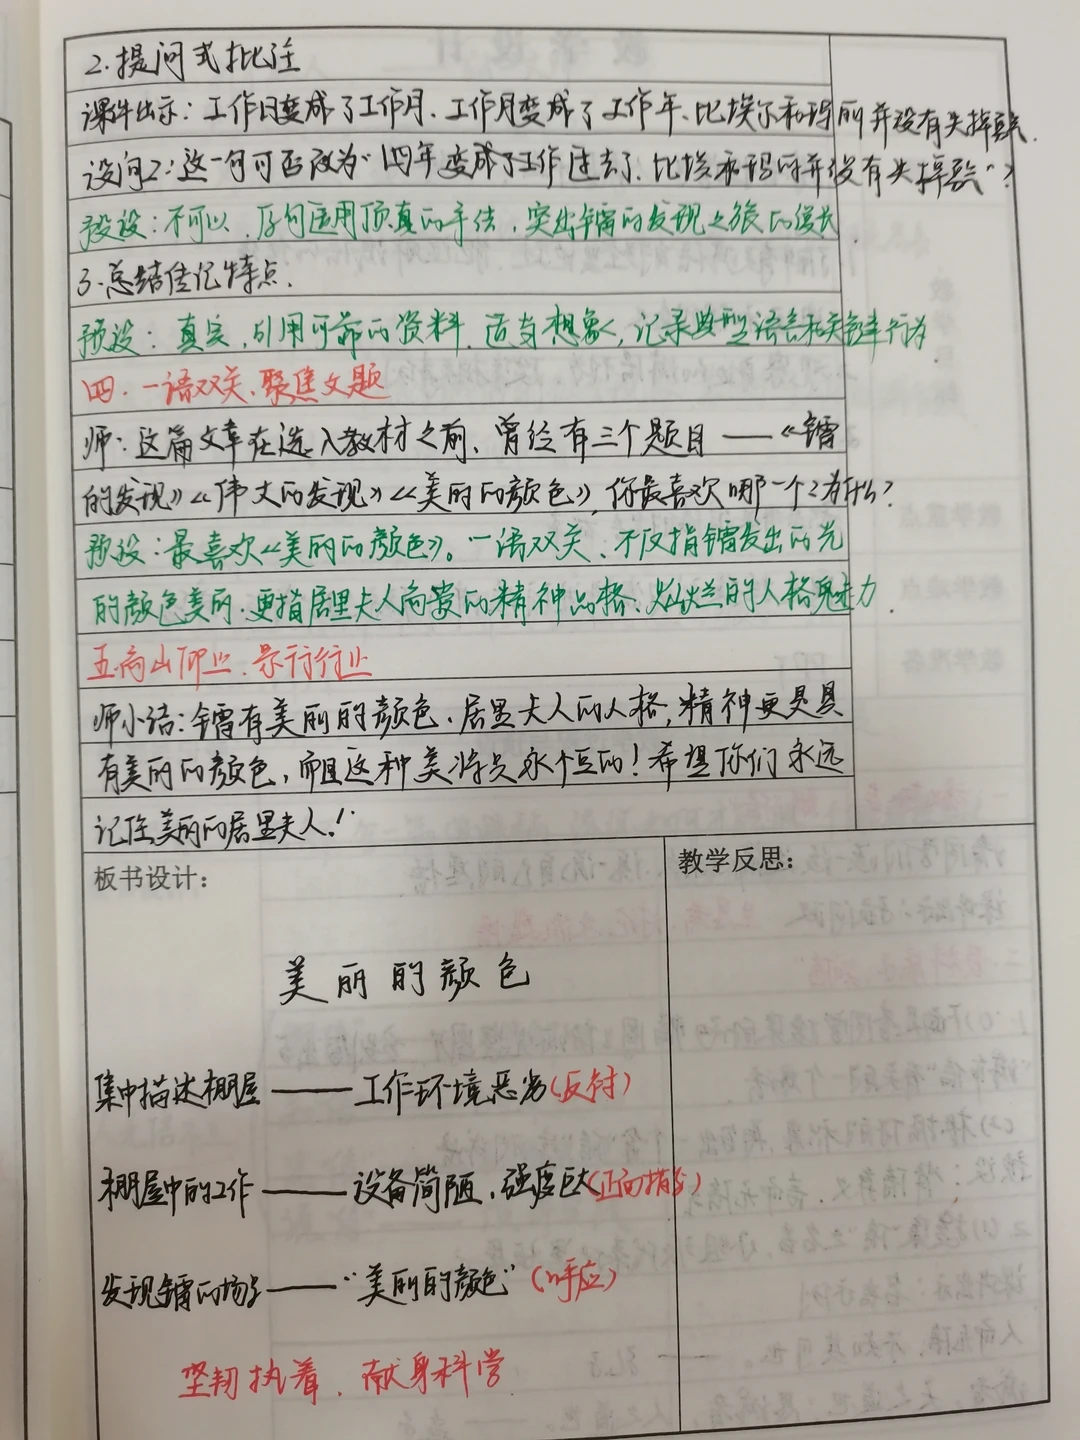 2.提问式批注
课件出示：工作日变成了工作月、工作月变成了工作年、比埃尔和玛丽并没有失掉勇气.
设问2:这一句可否改为“四年变成了工作过去了，比埃和玛丽并没有失掉勇气”？
预设：不可以，原句运用顶真的手法，突出镭的发现之旅的漫长.
3.总结传记特点.
预设：真实，引用可靠的资料，适当想象，记录典型语言和关键事行为
四.一语双关、聚焦文题
师：这篇文章在选入教材之前、曾经有三个题目——《镭
的发现》《伟大的发现》《美丽的颜色》，你最喜欢哪一个?为什么?
预设：最喜欢《美丽的颜色》。一语双关、不仅指镭发出的光
的颜色美丽.更指居里夫人高尚的精神品格、灿烂的人格魅力.
五.高山仰止、景行行止
师小结：镭有美丽的颜色.居里夫人的人格,精神更是具
有美丽的颜色，而且这种美将是永恒的！希望你们永远
记住美丽的居里夫人！
板书设计：
教学反思：
美丽的颜色
集中描述棚屋——工作环境恶劣(反衬)
棚屋中的工作——设备简陋、强度巨大(正面描写)
发现镭的场景——“美丽的颜色”(呼应)
坚韧执着、献身科学